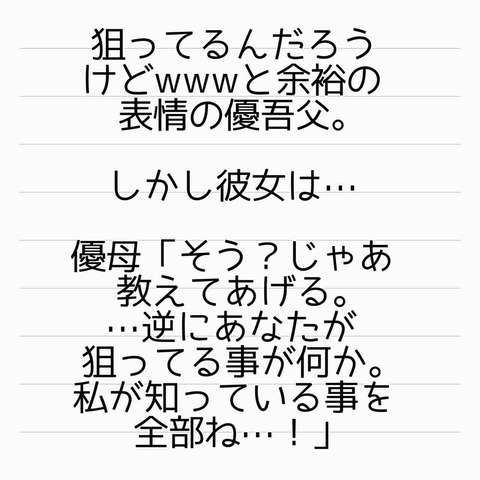 狙ってるんだろう
けどwwwと余裕の
表情の優吾父。
しかし彼女は…
優母「そう？じゃあ
教えてあげる。
…逆にあなたが
狙ってる事が何か。
私が知っている事を
全部ね…！」